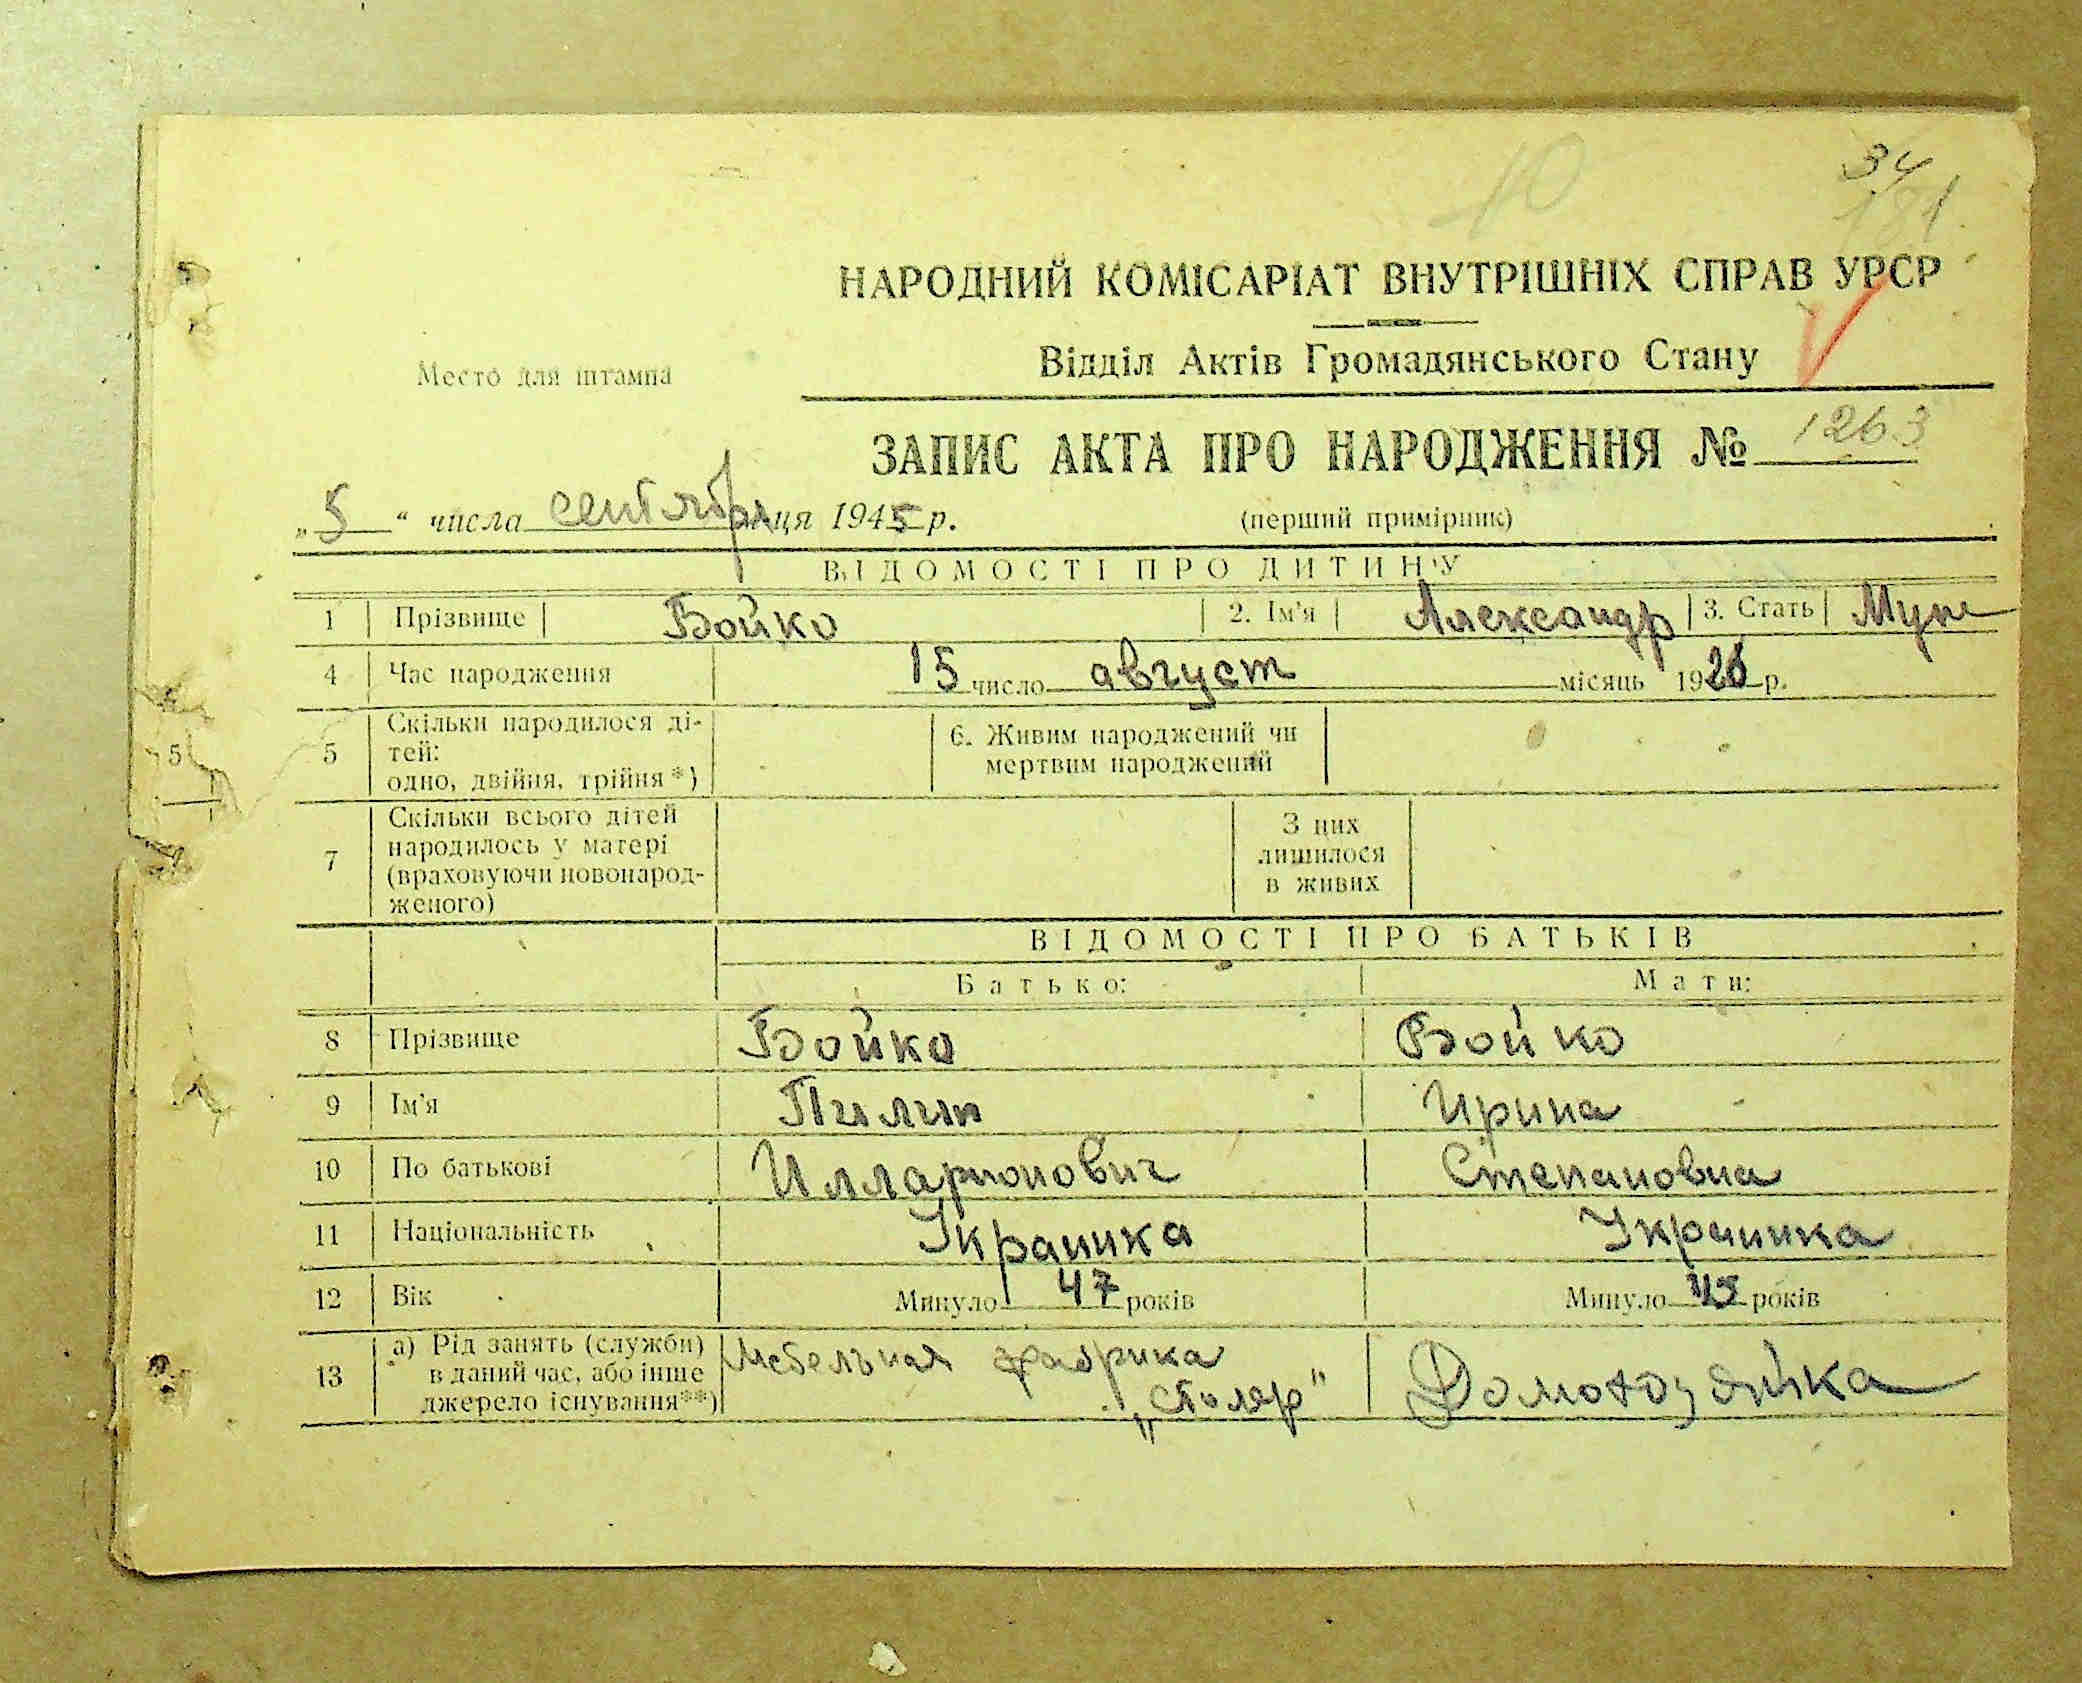 10
34
181
НАРОДНИЙ КОМІСАРІАТ ВНУТРІШНІХ СПРАВ УРСР
Место для штампа
Відділ Актів Громадянського Стану
ЗАПИС АКТА ПРО НАРОДЖЕННЯ № 1263
„5“ числа сентября м-ця 1945 р. (перший примірник)
ВІДОМОСТІ ПРО ДИТИНУ
1 Прізвище Бойко 2. Ім'я Александр 3. Стать Муж
4 Час народження 15 число август місяць 1926 р.
5 Скільки народилося ді-
тей:
одно, двійня, трійня*)
6. Живим народжений чи
мертвим народжений
7 Скільки всього дітей
народилось у матері
(враховуючи новонарод-
женого)
З цих
лишилося
в живих
ВІДОМОСТІ ПРО БАТЬКІВ
Батько: Мати:
8 Прізвище Бойко Бойко
9 Ім'я Пилип Ирина
10 По батькові Илларионович Степановна
11 Національність Украинка Украинка
12 Вік Минуло 47 років Минуло 45 років
13 а) Рід занять (служби)
в даний час, або інше
джерело існування**)
Мебельная фабрика
„Столяр"
Домохозяйка
5